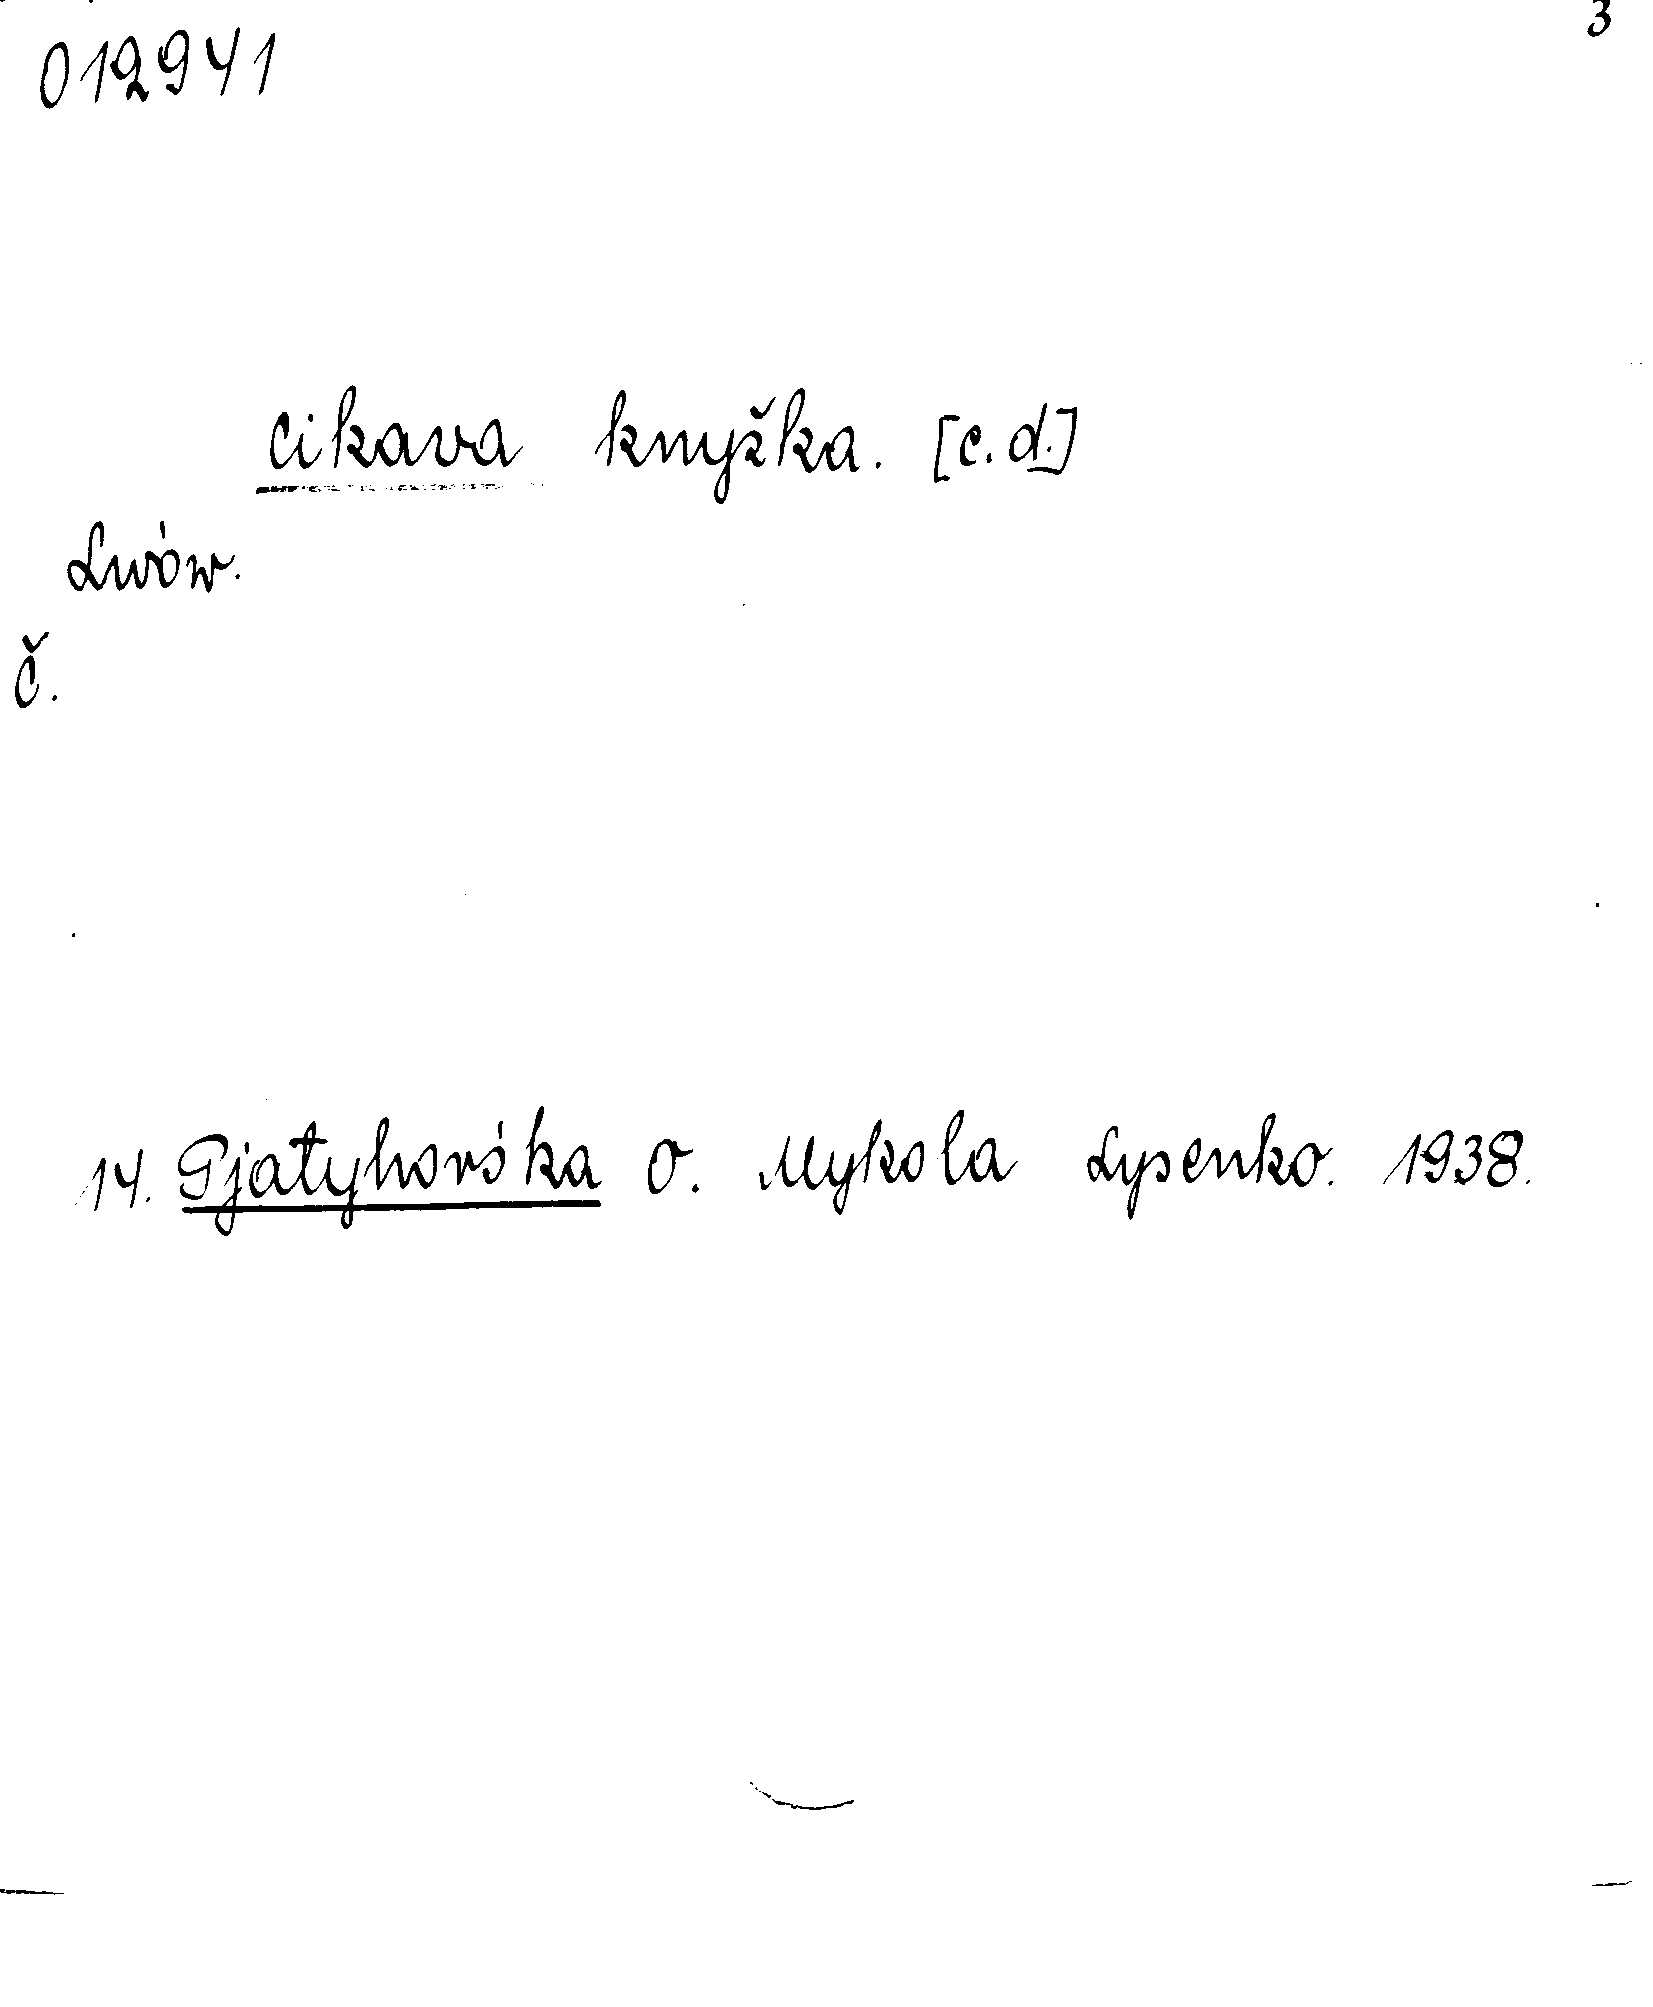 3
012941
Cikava knyžka. [c.d.]
Lwów.
č.
14. Pjatyhorśka O. Mykola Lysenko. 1938.